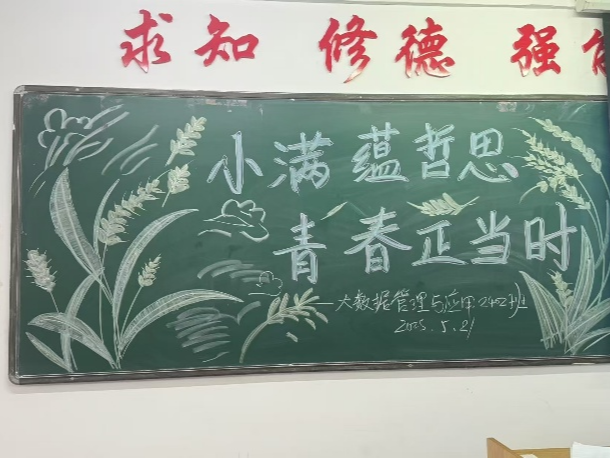 求知 修德 强
小满蕴哲思
青春正当时
——大数据管理与应用2402班
2025.5.21